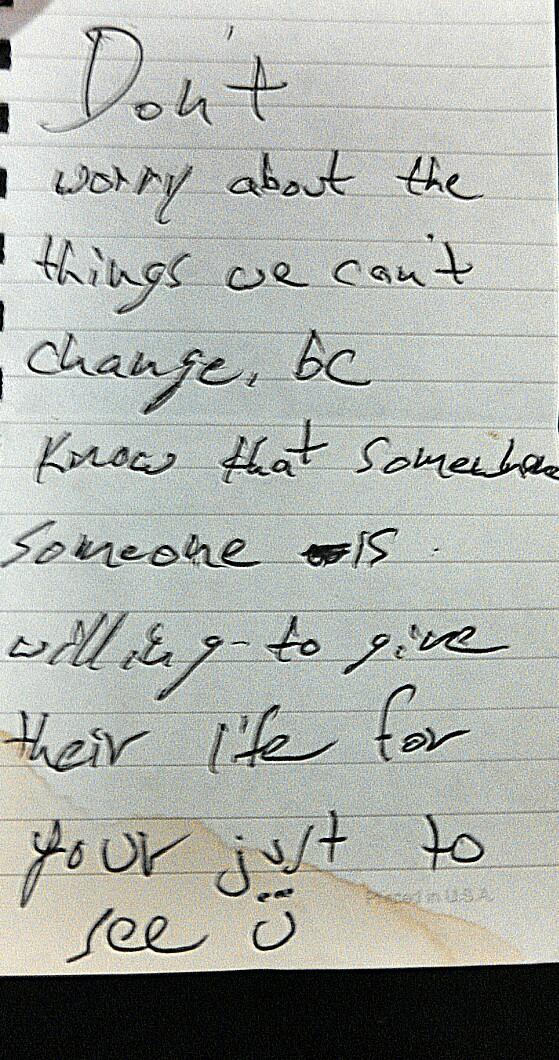 Don't
worry about the
things we can't
change, bc
know that somewhere
someone is
willing to give
their life for
your just to
see
Printed in U.S.A.